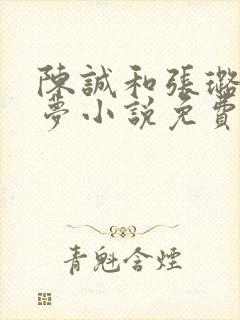 陳誠和張璐
夢小說免費
青魁含煙